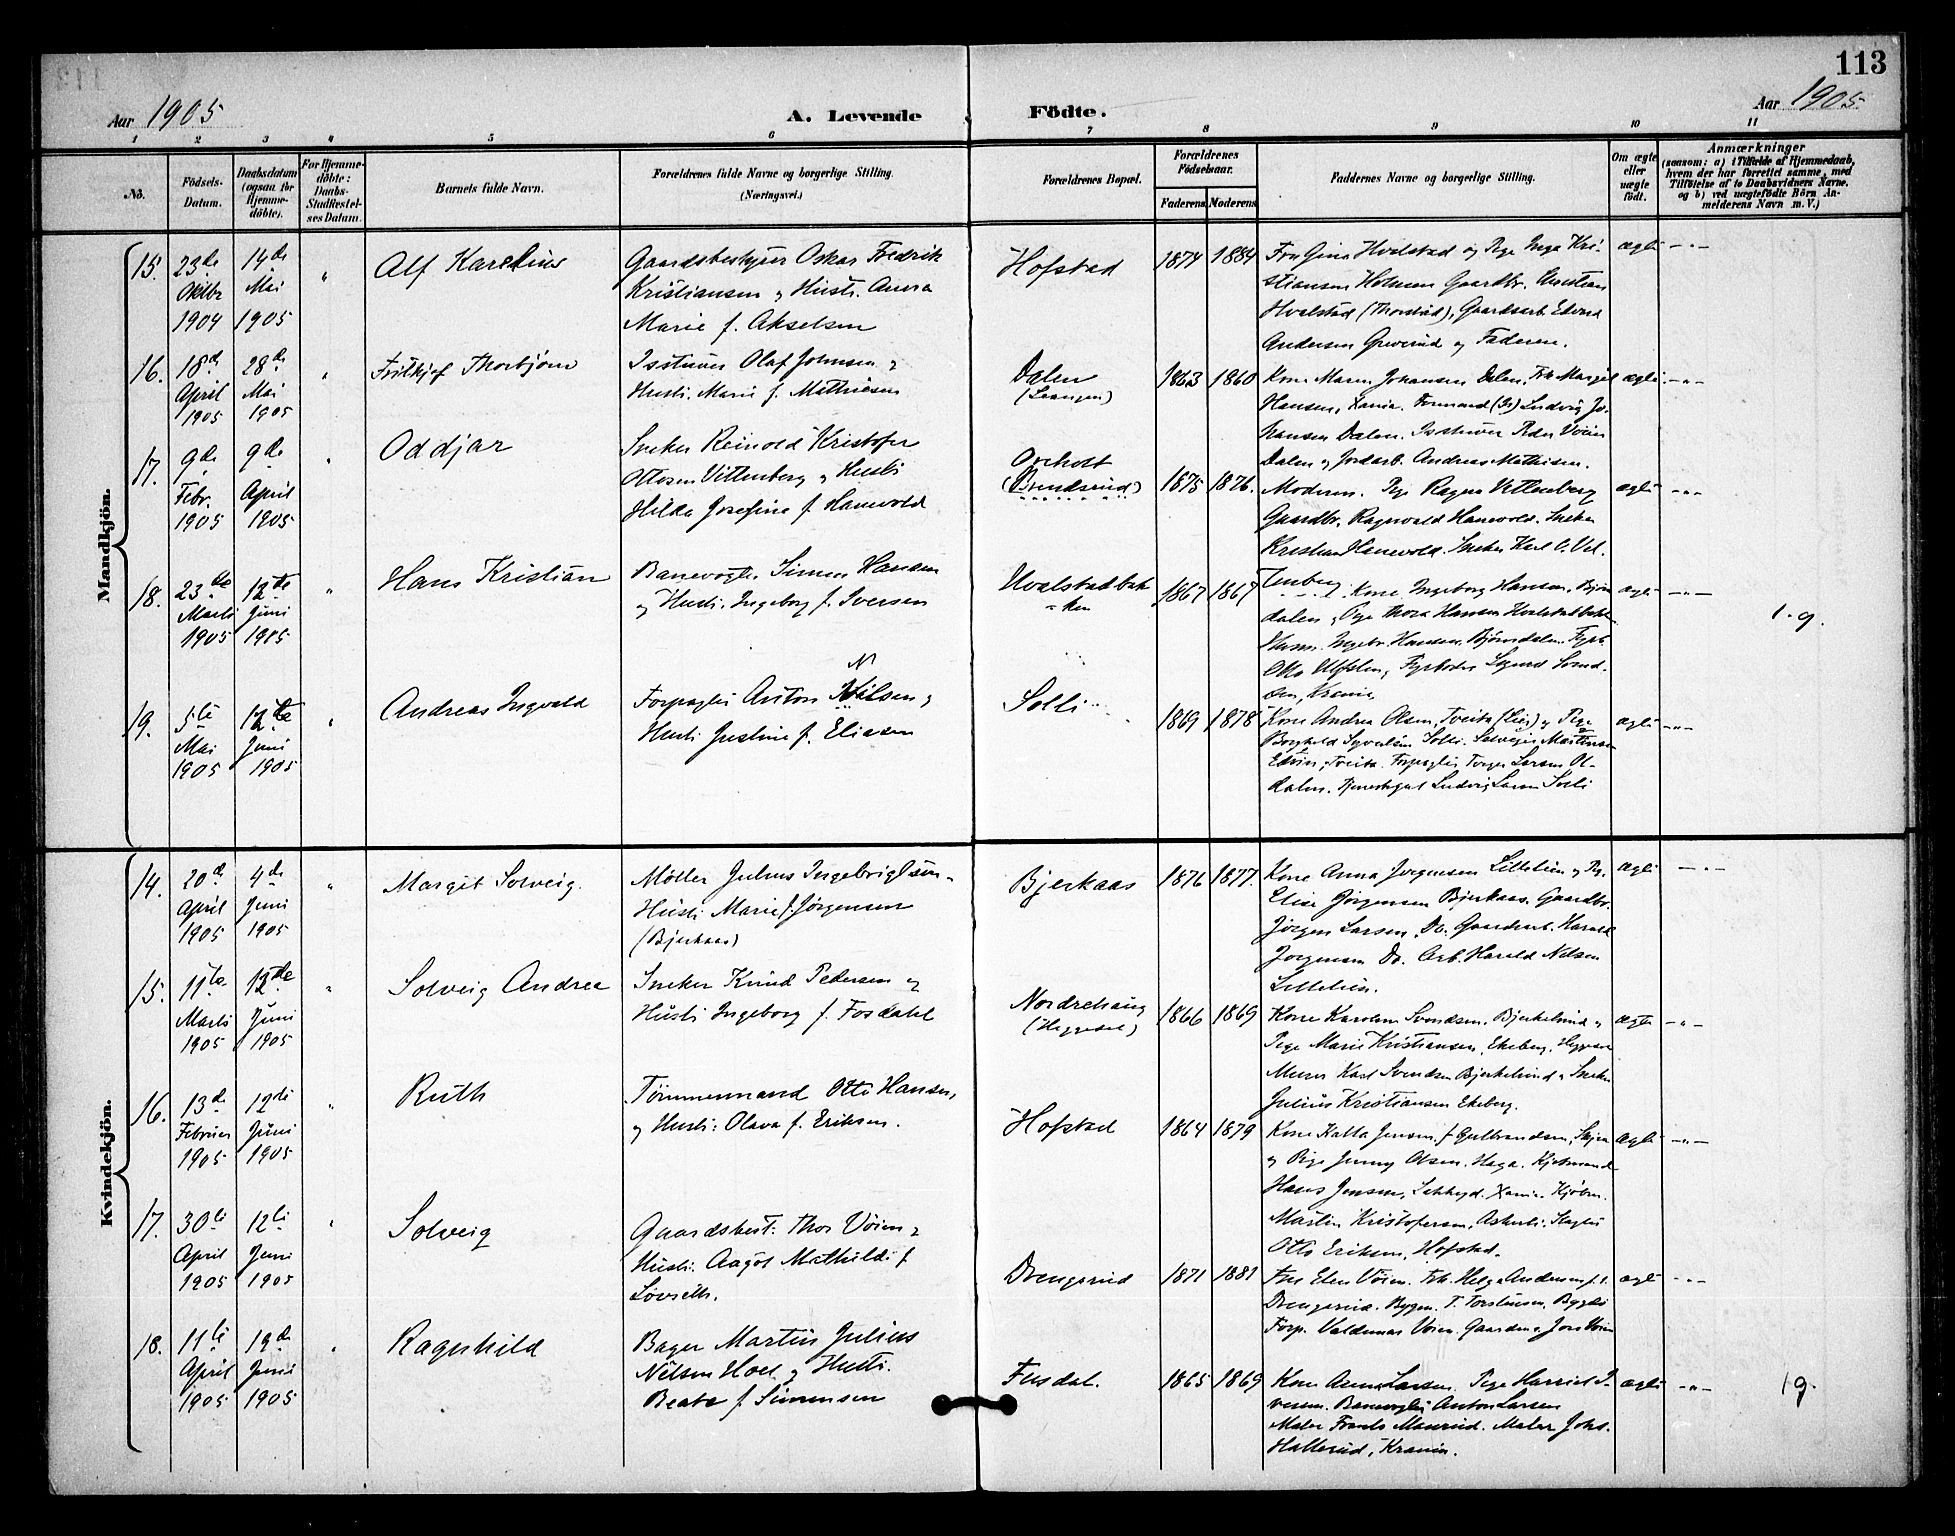 113
Aar 1905
A. Levende
Födte.
Aar 1905.
1 2 3 4 5 6 7 8 9 10 11
No.
Födsels-
Datum.
Daabsdatum
(ogsaa for
Hjemme-
döbte).
For Hjemme-
döbte:
Daabs-
Stadfæstel-
ses Datum.
Barnets fulde Navn.
Forældrenes fulde Navne og borgerlige Stilling.
(Næringsvei.)
Forældrenes Bopæl.
Forældrenes
Födselsaar.
Faderens. Moderens.
Faddernes Navne og borgerlige Stilling.
Om ægte
eller
uægte
födt.
Anmærkninger
(saasom: a) i Tilfælde af Hjemmedaab,
hvem der har forrettet samme, med
Tilföielse af to Daabsvidners Navne.
og b) ved uægtefödte Börn An-
melderens Navn m. V.)
Mandkjön.
15.
23de
Oktbr
1904
14de
Mai
1905
"
Alf Karelius
Gaardsbestyrer Oskar Fredrik
Kristiansen og Hustr. Anna
Marie f. Akselsen
Hofstad
1874 1884
Fru Gina Hvalstad og Pige Inga Kri-
stiansen Holmen Gaardbr. Kristian
Hvalstad (Thorstad), Gaardsarb. Edvard
Andersen Greverud og Faderen.
ægte -"-
16.
18de
April
1905
28de
Mai
1905
"
Fritkjof Thorbjørn
Isstuver Olaf Johnsen og
Hustr. Marie f. Mathiesen
Dalen
(Leangen)
1863 1860
Kone Maren Johansen Dalen, Frk Margit
Hansen, Xania. Formand (Is) Ludvig Jo-
hansen Dalen. Isstuver Peder Vöien
Dalen og Jordarb. Andreas Mathisen.
ægte -"-
17.
9de
Febr.
1905
9de
April
1905
"
Oddjar
Sneker Reinold Kristofer
Ottosen Vittenberg og Hustr
Hilda Josefine f. Hanevold
Oreholt
(Brendsrud)
1875 1876.
Moderen. Pige Ragna Vittenberg
Gaardbr. Ragnvald Hanevold. Sneker
Kristian Hanevold. Sneker Karl O. Vit-
tenberg.
ægte -"-
18.
23de
Marts
1905
12te
Juni
1905
"
Hans Kristian
Banevogter Simen Hansen
og Hustr. Ingeborg f. Iversen
Hvalstadbak
=ken
1867 1867
Kone Ingeborg Hansen, Bjørn
dalen, Pige Thora Hansen Hvalstadbakn
Husm. Ingebr. Hansen, Bjørndalen. Fyrb.
Otto Ulfsten, Fyrbøder Sigurd
Xania
ægte -"-
1.9.
19.
5te
Mai
1905
12te
Juni
1905
"
Andreas Ingvald
N
Forpagter Anton Nilsen og
Hustr Justine f. Eliasen
Solli
1869 1878
Kone Andrea Olsen, Tveita (Lier) og Pige
Borghild Syversen Solli. Selveier Martinse
Edvin, Tveita. Forpagter Torger Larsen Ol-
dalen. Tjenestegut Ludvig Larsen Solli
ægte -"-
Kvindekjön.
14.
20de
April
1905
4de
Juni
1905
"
Margit Solveig.
Möller Julius Ingebrigtsen -
Hustr Marie f. Jörgensen
(Bjerkaas)
Bjerkaas
1876 1877.
Kone Anna Jörgensen Lillelien og Pig.
Elise Jörgensen Bjerkaas. Gaardbr.
Jörgen Larsen, Do. Gaardarb. Harald
Jörgensen Do. Arb. Harald Nilsen
Lillelien.
ægte -"-
15.
11te
Marts
1905
12te
Juni
1905
"
Solveig Andrea
Sneker Knud Pedersen og
Hustr Ingeborg f. Fosdahl
Nordrehaug
(Heggedal)
1866 1869
Kone Karoline Svendsen, Bjerkelund og
Pige Marie Kristiansen, Ekeberg, Heggeda
Murer Karl Svendsen Bjerkelund og Sneker
Julius Kristiansen Ekeberg.
ægte -"-
16.
13de
Februar
1905
12te
Juni
1905
"
Ruth
Tömmermand Otto Hansen,
og Hustr: Olava f. Eriksen.
Hofstad
1864 1879
Kone Kalla Jensen, f Gulbrandsen,
og Pige Jenny Olsen. Haga. Kjøbmand
Hans Jensen, Xania. Kjöbm.
Martin Kristofersen, Askerli.
Otto Eriksen, Hofstad.
ægte -"-
17.
30te
April
1905
12te
Juni
1905
"
Solveig
Gaardsbest: Thor Vöien og
Hustr: Aagot Mathilde f.
Drengsrud
1871 1881
Fru Elen Vöien. Frk. Helga Andersen
Drengsrud. Bygm. T. Torstensen,
Forp. Valdemar Voien.
ægte -"-
18.
11te
April
1905
19de
Juni
1905
"
Ragnhild
Bager Martin Julius
Nilsen Hoel og Hustr.
Beate f. Simensen
Fusdal.
1865 1869
Kone Anna Larsen. Pige Harriet I-
versen. Banevogter Anton Larsen
Maler Frants Maurud. Maler Johs.
Hallerud, Xrania.
ægte -"-
19.